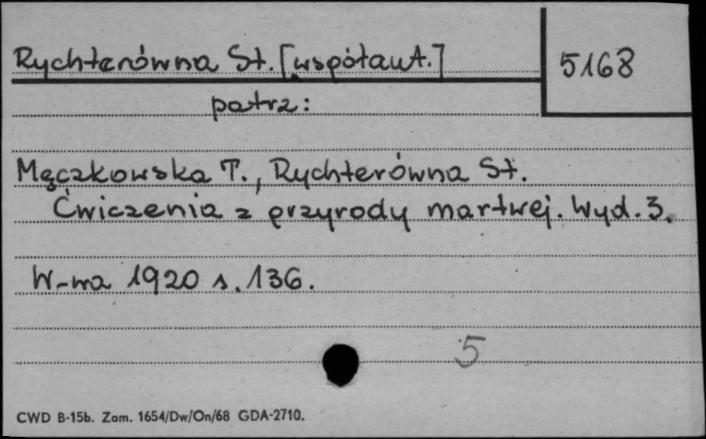 Rychterówna St. [współaut.]
5168
patrz:
Mączkowska T., Rychterówna St.
Ćwiczenia z przyrody martwej. Wyd. 3.
W-wa 1920 s. 136.
5
CWD B-15b. Zam. 1654/Dw/On/68 GDA-2710.